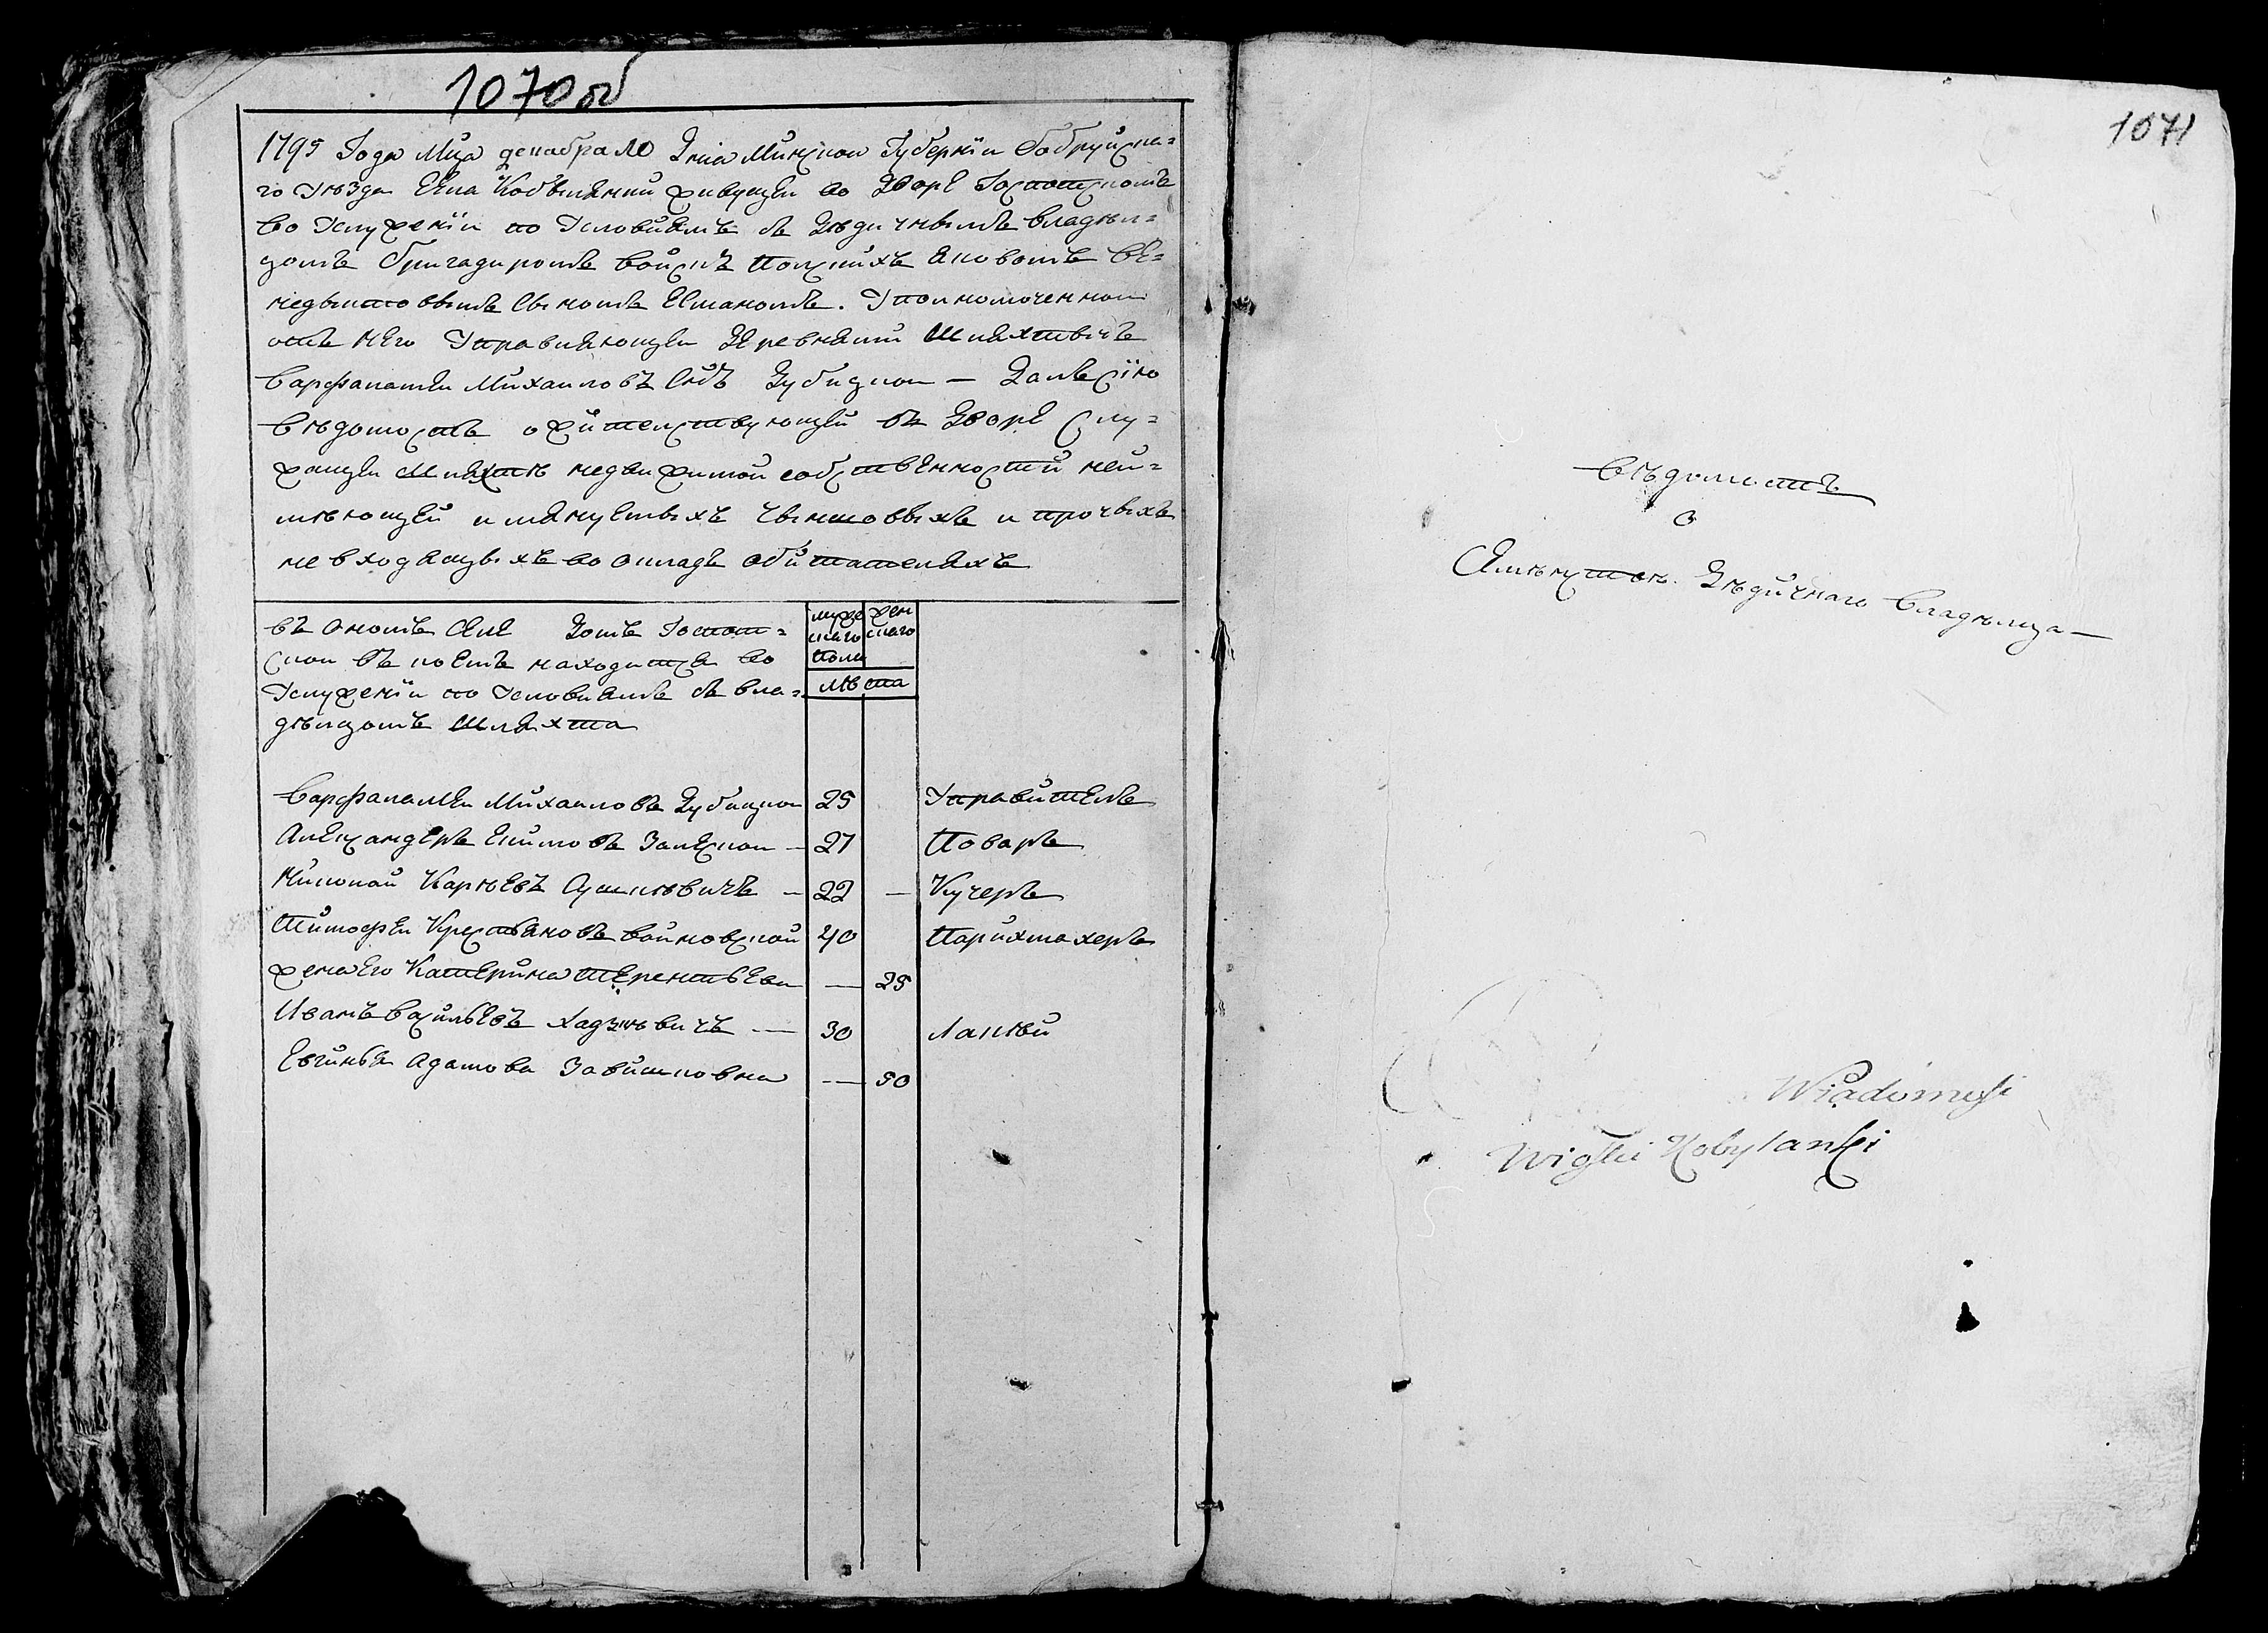 1070 об
1795 Года Мца декабра 10 Дниа Минскои Губернїи Бобруйска=
го Уѣзда Села Кобылянки живущеи во Дворе Господскомъ
во Услуженїи по Условиямъ съ Дѣдичнымъ владѣл=
цомъ бригадиромъ войскъ Полскихъ Яковомъ Бе=
недыктовымъ Сыномъ Есманомъ. Уполномоченнои
отъ Него Управляющеи Деревнями Шляхтичъ
Варфаламеи Михаиловъ Снъ Дубицкои — Даль сїю
вѣдомость о жителствующей въ Дворе Слу=
жащеи Шляхтѣ недвижимои собственности неи=
мѣющей и имянуемыхъ Чыншовыхъ и прочыхъ
не входящыхъ во окладъ обитателяхъ
въ Ономъ Селе Домъ Господ=
скои въ коемъ находится во
Услуженїи по Условиямъ съ вла=
дѣлцомъ Шляхта
муже скаго Пола
жен скаго
лѣта
Варфаламеи Михаиловъ Дубицкои 25 Управитель
Александеръ Екимовъ Залескои — 27 Поваръ
Николай Карнѣевъ Сушкѣвичъ — 22 — Кучеръ
Тимофеи Крестьяновъ Войновской 40 Парихмахеръ
жена Его Катерина Терентьева — 25
Иванъ Васильевъ Хадзкѣвичъ — 30 Лакѣй
Евгинья Адамова Завишовна — 50
1071
Вѣдомость
О
Дѣдичнаго Владѣлца —
Wiadomość
Wioski Kobylanki